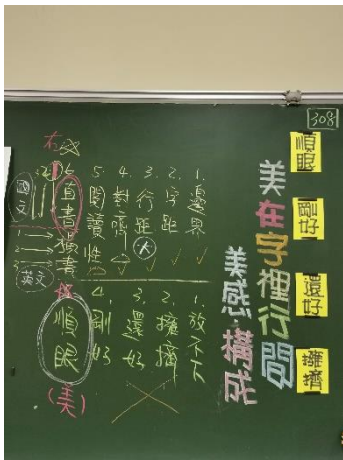 308
順眼
剛好
還好
擁擠
美在字裡行間
美感構成
1. 邊界
2. 字距
3. 行距 大
4. 對齊
5. 閱讀性
1. 放不下
2. 擁擠
3. 還好
4. 剛好
直書
橫書
國文
英文
順眼
(美)